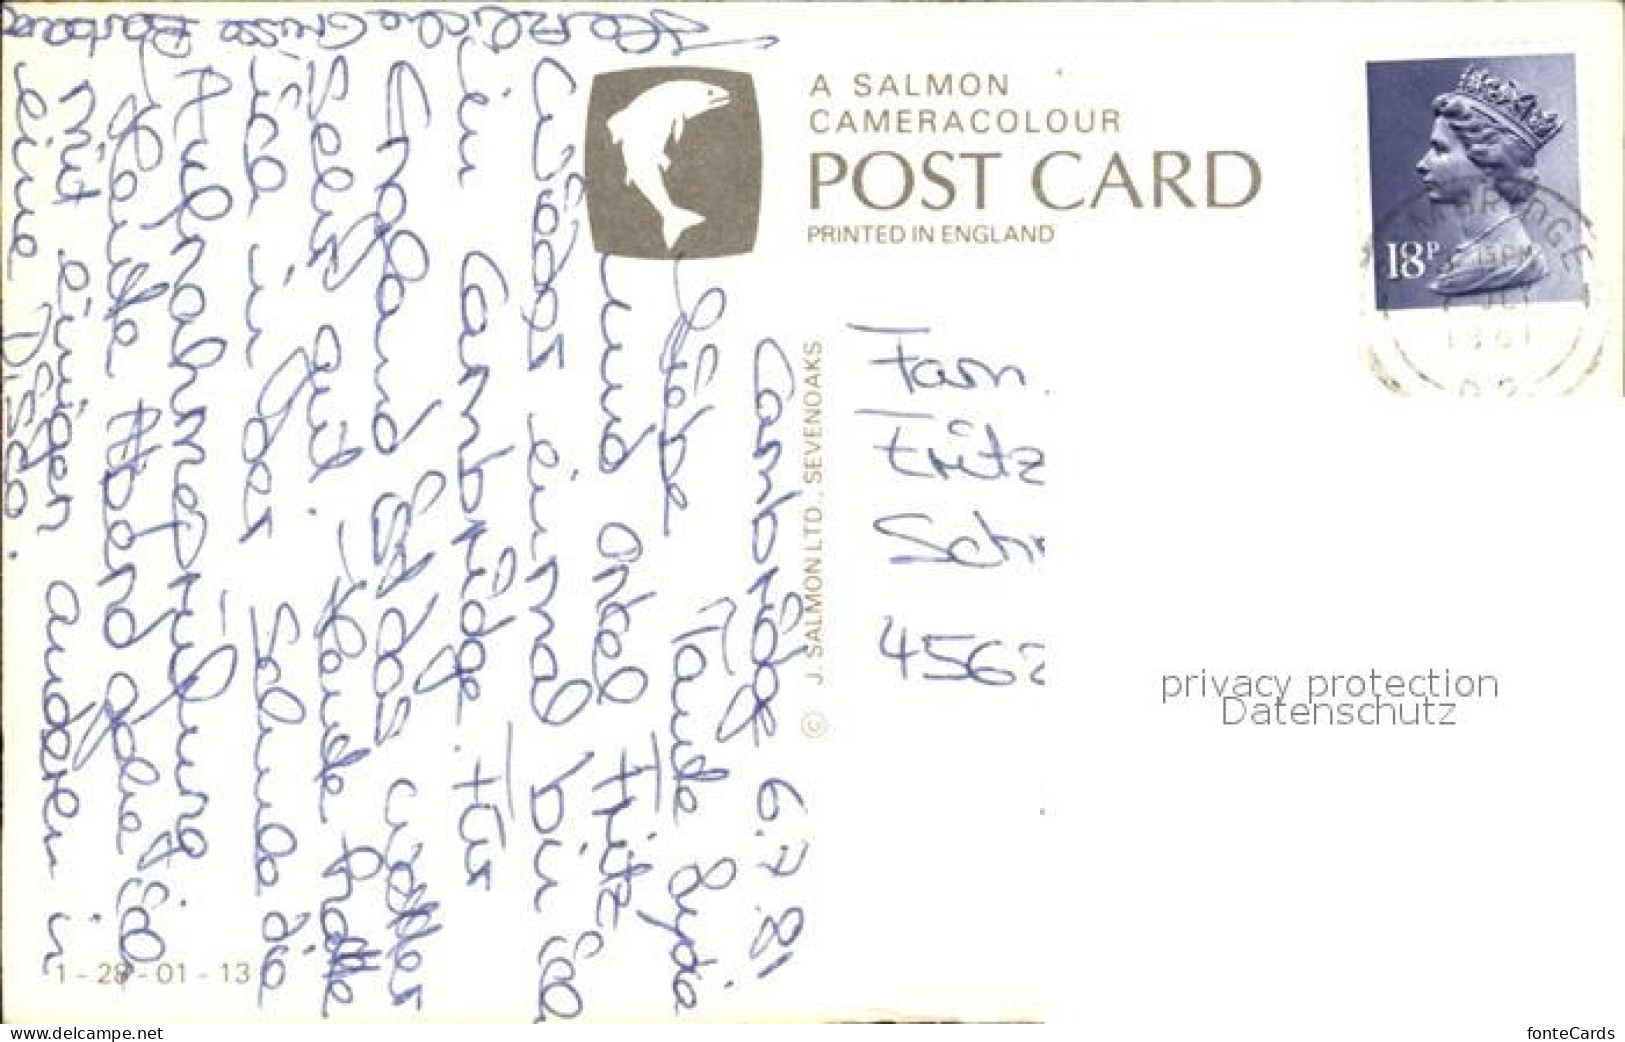 Cambridge 6.7.81
Liebe Tante Lydia
und Onkel Fritz
Wieder einmal bin ich
in Cambridge. Für
England ist das Wetter
sehr gut. Heute hatte
ich in der Schule die
Aufnahmeprüfung
Heute Abend gehe ich
mit einigen anderen in
eine Disco.
Herzliche Grüsse Barbara
A SALMON
CAMERACOLOUR
POST CARD
PRINTED IN ENGLAND
© J. SALMON LTD., SEVENOAKS
18P
CAMBRIDGE
15 PM
1981
Fam.
Fritz
Sch
4562
privacy protection
Datenschutz
1 - 28 - 01 - 13
www.delcampe.net
fonteCards